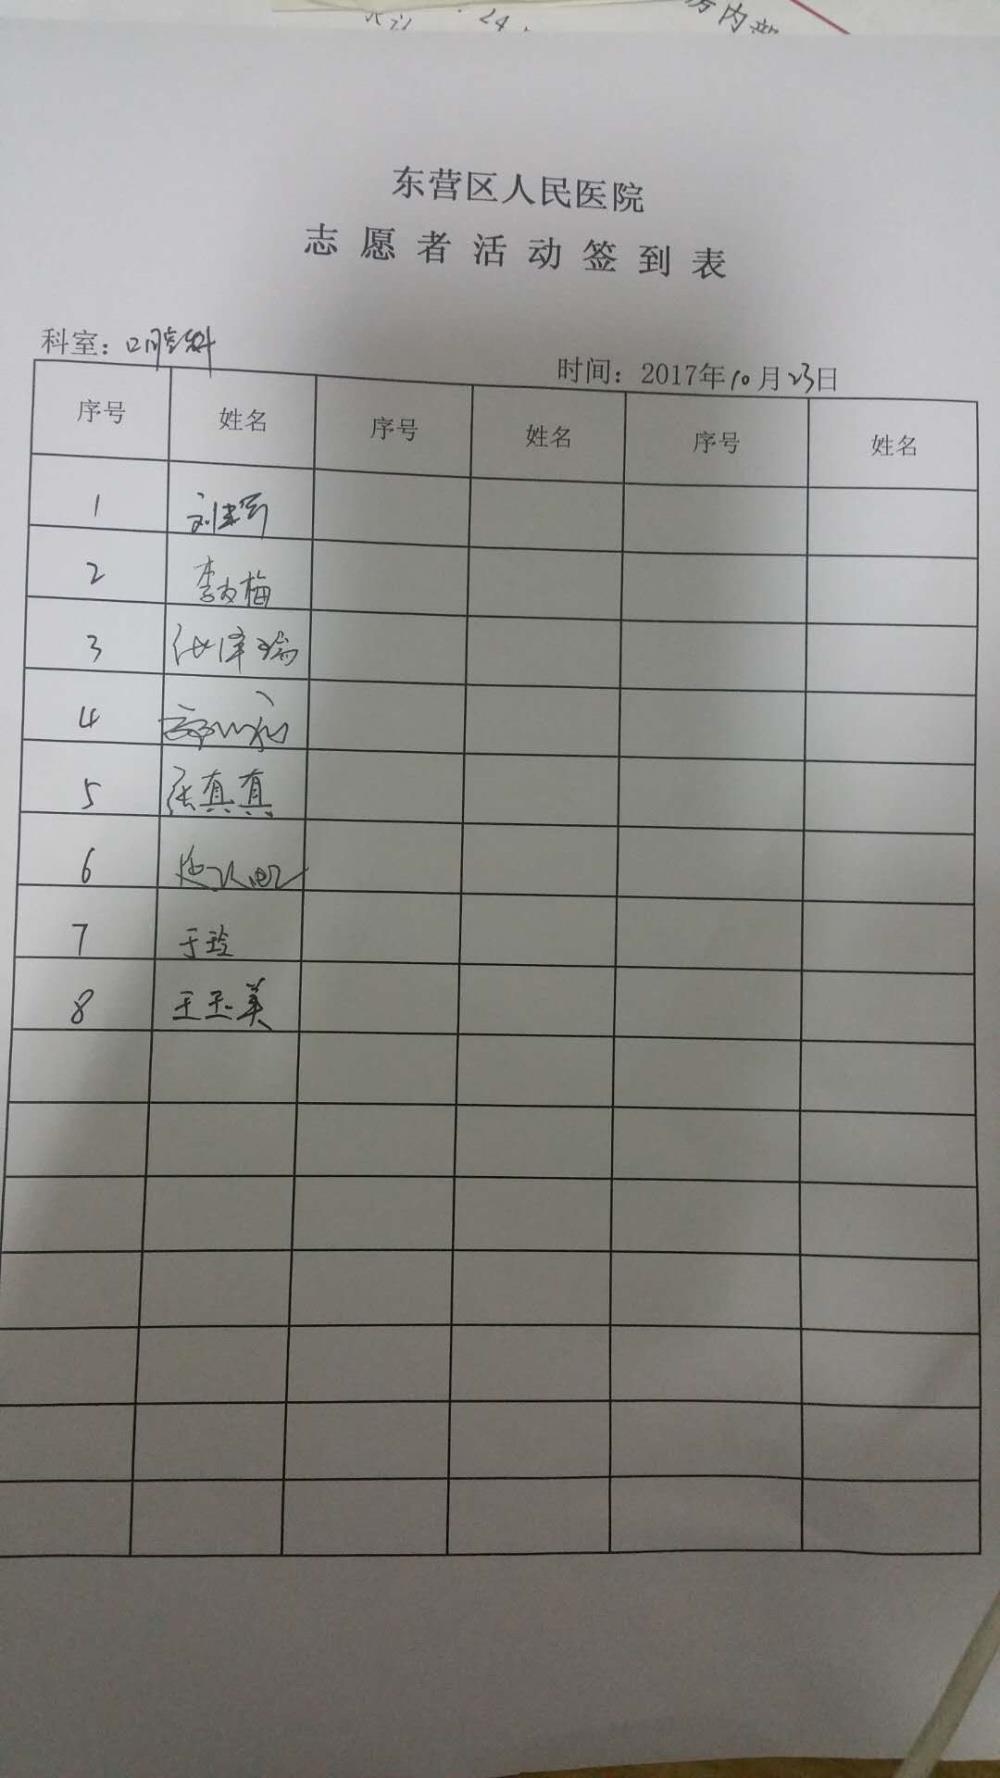 24.
房内部
东营区人民医院
志愿者活动签到表
科室：口腔科
时间：2017年10月23日
序号 姓名 序号 姓名 序号 姓名
1
2 李友梅
3 泽瑞
4
5 张真真
6
7 于玲
8 王玉美